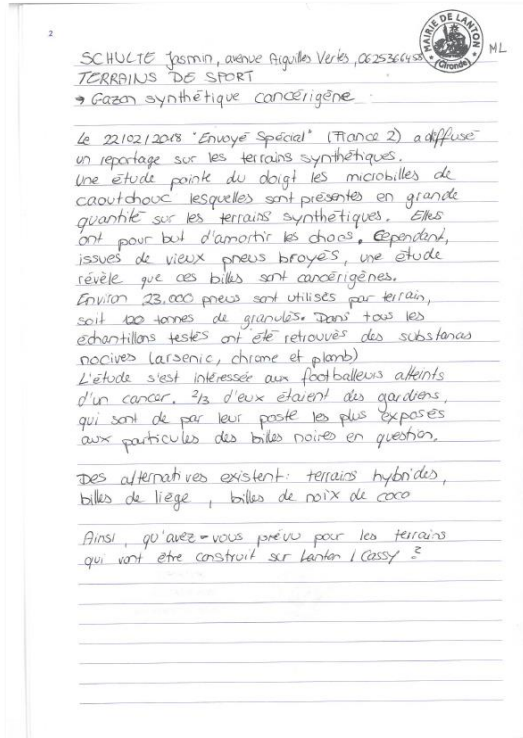 2
MAIRIE DE LANTON
(Gironde)
ML
SCHULTE Jasmin, avenue Aiguilles Vertes, 0625366458
TERRAINS DE SPORT
→ Gazon synthétique cancérigène
Le 22/02/2018 "Envoyé Spécial" (France 2) a diffusé
un reportage sur les terrains synthétiques.
Une étude pointe du doigt les microbilles de
caoutchouc lesquelles sont présentes en grande
quantité sur les terrains synthétiques. Elles
ont pour but d'amortir les chocs. Cependant,
issues de vieux pneus broyés, une étude
révèle que ces billes sont cancérigènes.
Environ 23.000 pneus sont utilisés par terrain,
soit 120 tonnes de granulés. Dans tous les
échantillons testés ont été retrouvés des substances
nocives (arsenic, chrome et plomb)
L'étude s'est intéressée aux footballeurs atteints
d'un cancer. 2/3 d'eux étaient des gardiens,
qui sont de par leur poste les plus exposés
aux particules des billes noires en question.
Des alternatives existent: terrains hybrides,
billes de liège, billes de noix de coco
Ainsi, qu'avez-vous prévu pour les terrains
qui vont être construit sur Lanton / Cassy ?